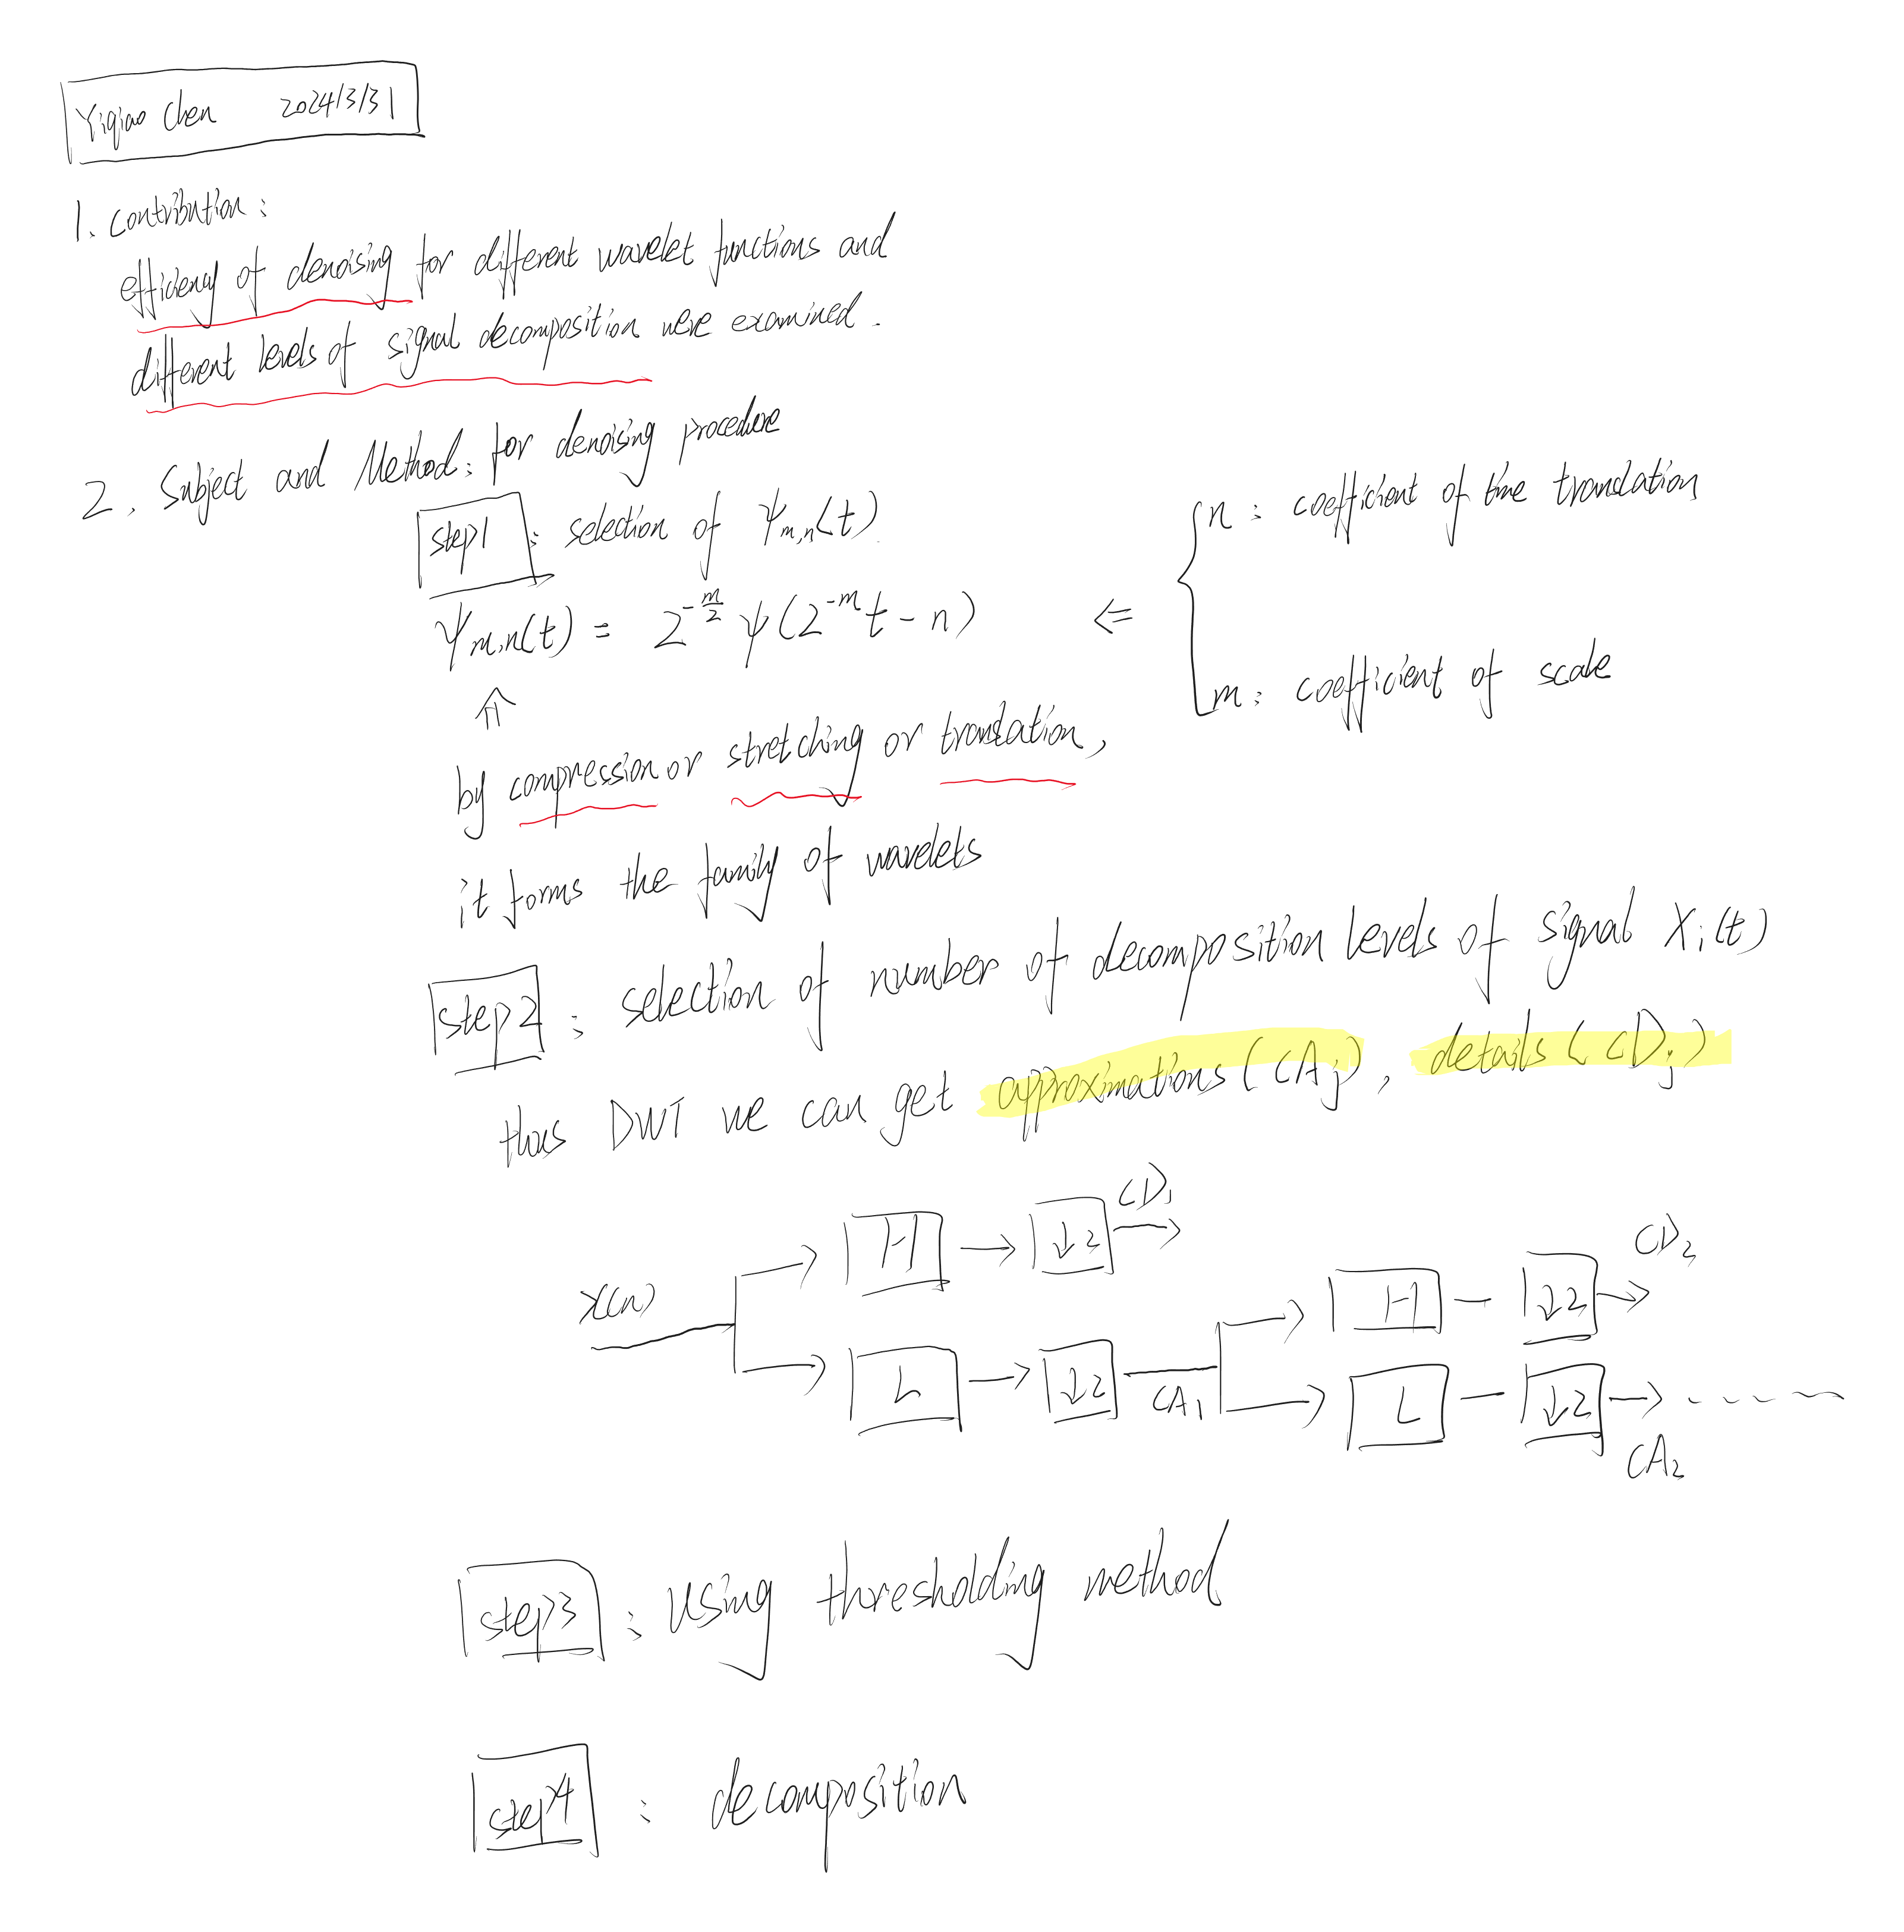 Yiqiao Chen 2024/3/31
1. contribution:
efficiency of denoising for different wavelet functions and
different levels of signal decomposition were examined.
2. Subject and Method: for denoising procedure
step1 : selection of ψm,n(t).
ψm,n(t) = 2^(-m/2) ψ(2^(-m)t - n) ⇐
n: coefficient of time translation
m: coefficient of scale
⇑
by compression or stretching or translation,
it forms the family of wavelets
step2 : selection of number of decomposition levels of signal Xi(t)
thus DWT we can get approximations (CAj), details (CDj)
X(n)
H → ↓2 CD1
L → ↓2 CA1
H ↓2 CD2
L ↓2 CA2
step3 : Using thresholding method
step4 : decomposition